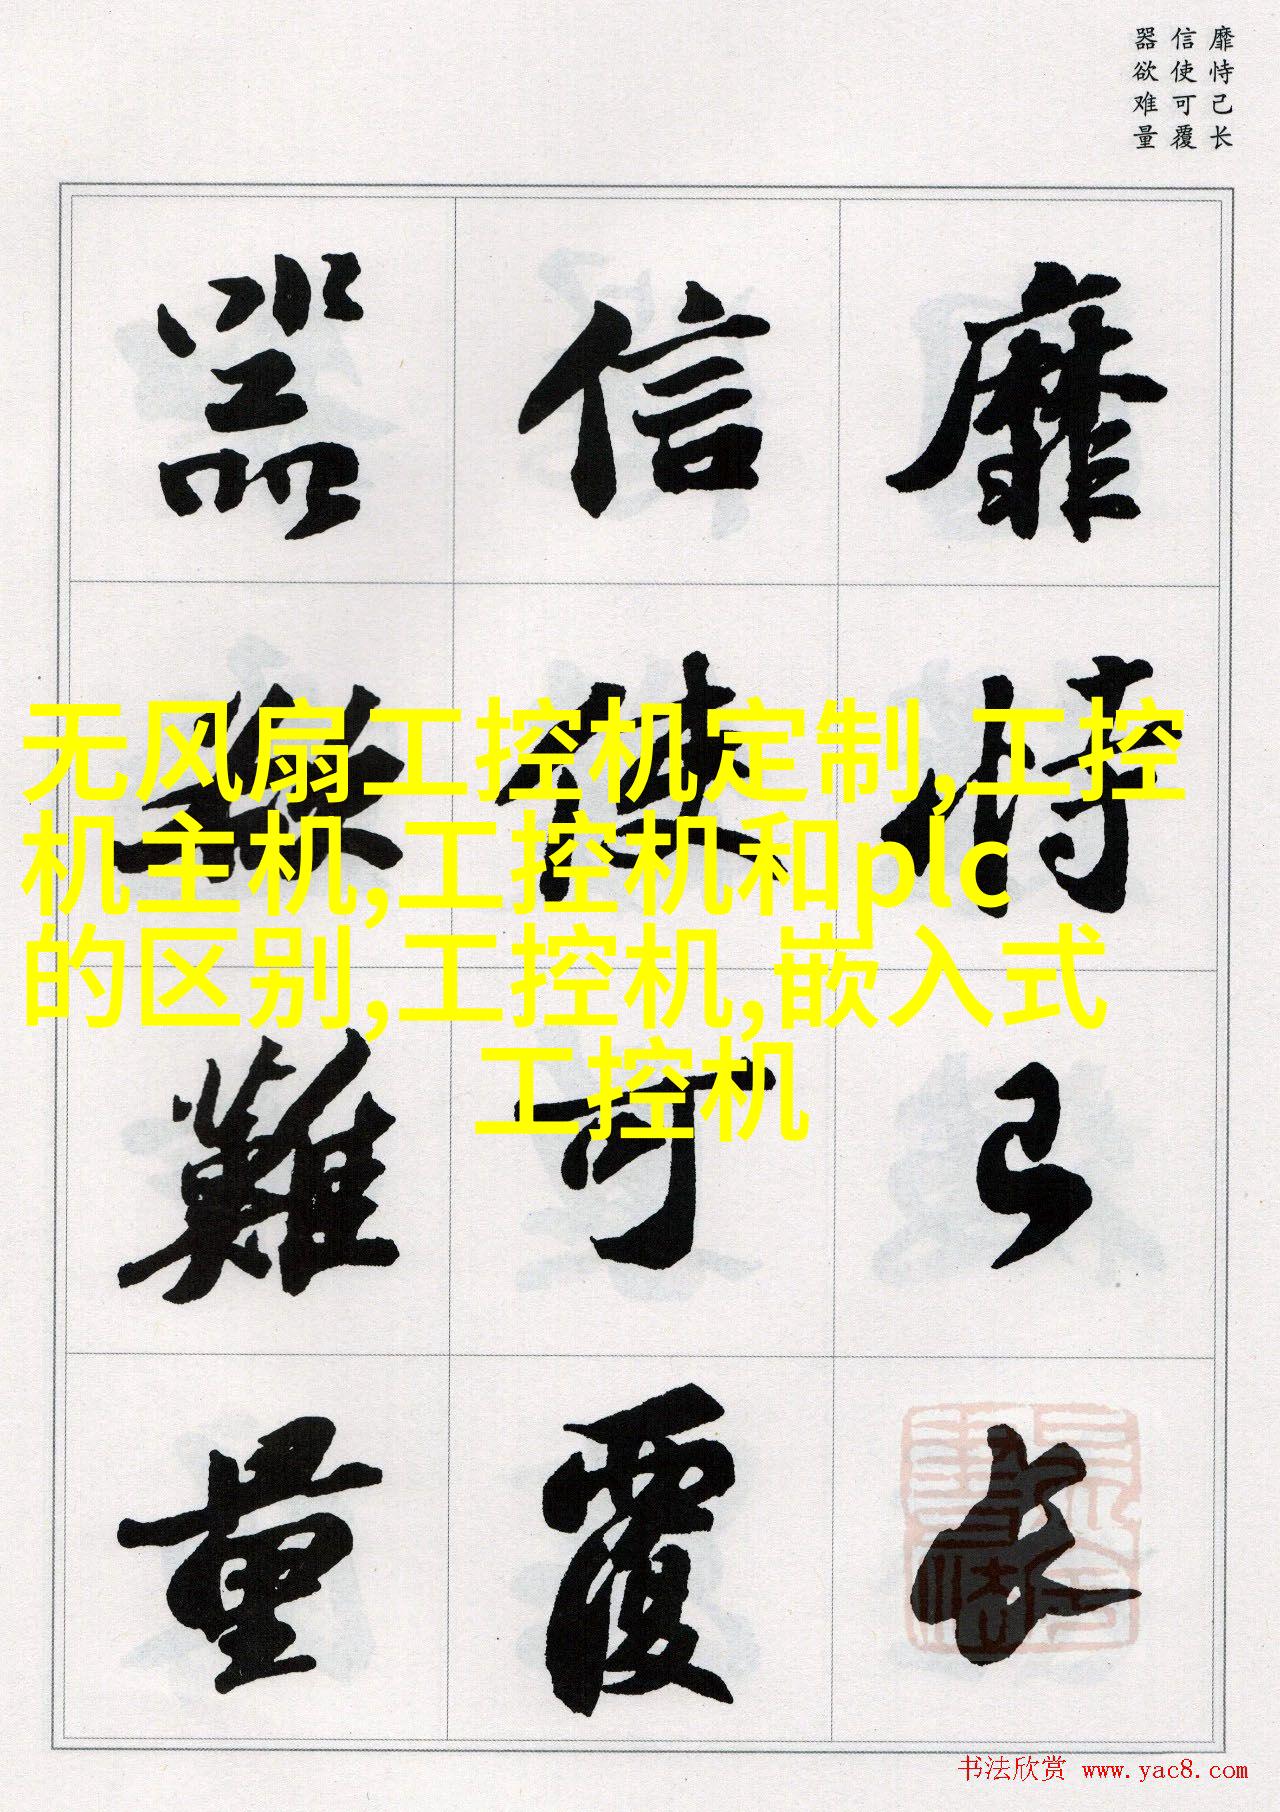 靡恃己长
信使可覆
器欲难量
靡恃己长
信使可覆
器欲難量
无风扇工控机定制,工控
机主机,工控机和plc
的区别,工控机,嵌入式
工控机
书法欣赏 www.yac8.com